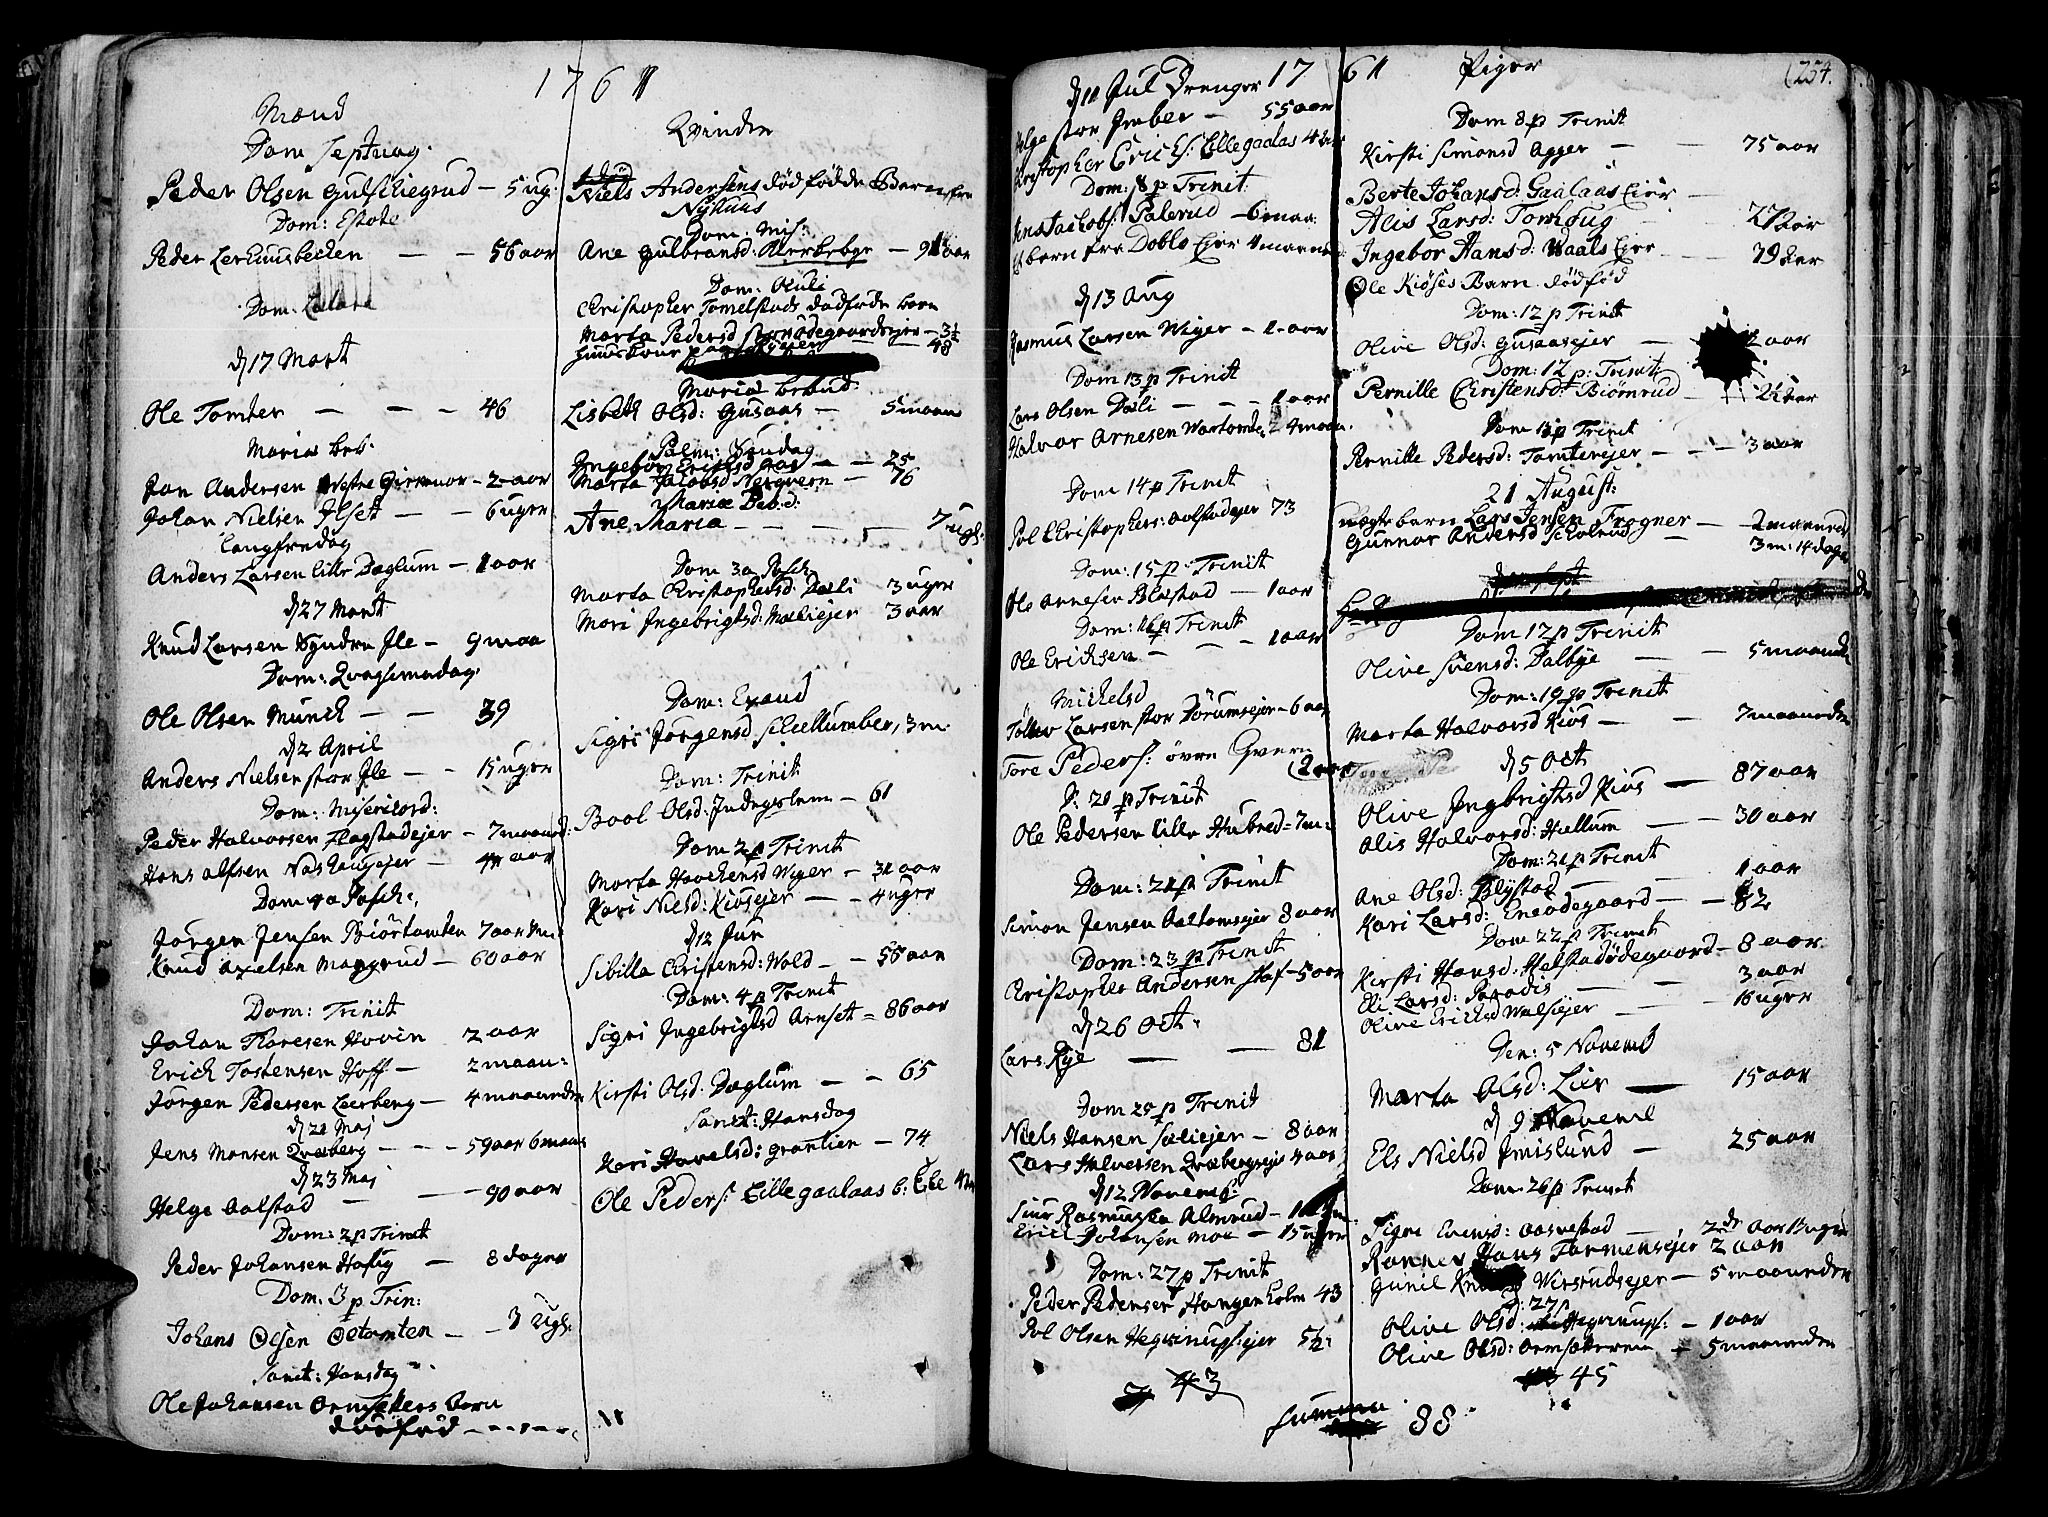 1761
Mænd
Dom Septuag.
Peder Olsen Gulschiegrud – 5 ug:
Dom: Estote
Peder Lerhuusbechen — — 56 aar
Dom: Lætare
d 17 Mart
Ole Tomter — — — 46
Mariæ beb:
Jan Andersen Vestre Girrenor – 2 aar
Johan Nielsen Ilset — — 6 uger
Langfredag
Anders Larsen lille Dæglum – 1 aar
d 27 Mart
Knud Larsen Syndre Ile – 9 maa
Dom: Qvasimodag.
Ole Olsen Munch — — 39
d 2 April
Anders Nielsen stor Ile — – 15 uger
Dom: Misericord:
Peder Halvorsen Flagstadejer – 7 maaned:
Hans Alfsen Nashaugejer — aar
Dom 4 a Pasch:
Jørgen Jensen Biørtomten 7 aar
Knud Axelsen Mangrud – 60 aar
Dom: Trinit
Johan Thoresen Hovin 2 aar
Erich Tostensen Hoff – 2 maan:
Jørgen Pedersen Leerberg – 4 maaneder
d 21 Maj
Jens Monsen Qvæberg – – – 59 aar 6 maan
d 23 Maj
Helge Aalstad — — – 90 aar
Dom: 2 p Trinit
Peder Johansen Hafig — 8 dager
Dom: 3 p Trin:
Johans Olsen Ottomten – – 3 Ugl:
Sanct: Hansdag
Ole Johansen Ormsetters barn
dødfød – – – – –
Qvinder
Niels Andersens dødfødde Barn fra
Nyhuus
Dom: Mis:
Ane Gulbransd: Alerbebye – 91 aar
Dom: Oculi
Christopher Tomelstads dødføde barn
Marta Pedersd Stenødegaardsejer – 3½
huuskone paa — 48
Mariæ bebud:
Lisbeth Olsd: Gusaas — 5 maan
Palm: Søndag
Ingebor Erichsd Aas — – 25
Marta Jacobsd Nergvern — 76
Mariæ Beb.d:
Ane Maria – – – – – 7 ugl:
Dom 3 a Pasch:
Marta Christophersd: Dæli 3 uger
Mari Ingebrigtsd: Mæliejer 3 aar
Dom: Exaud
Sigri Jørgensd Schellumber, 3 m
Dom: Trinit
Bool Olsd: Indegslem – 61
Dom 2 p Trinit
Marta Haachensd Wiger – 31 aar
Kari Nielsd: Kiøsejer – – 4 uger
d 12 Jun
Sibilla Christensd: Wold – – 56 aar
Dom: 4 p Trinit
Sigri Ingebrigtsd Arnset = 86 aar
Kirsti Olsd: Dæglum – – 65
Sanct: Hansdag
Kari Havelsd: Granlien – 74
Ole Peders: Lille gaalaas b:
1761
d 11 Jul Drenger
Helge stor Imber – 55 aar
Christopher Erichs: Lille gaalas 4 aar
Dom: 8 p Trinit
Jens Jacobs: Palerud – 6 maa:
Et barn fra Doblo Eier 4 maaned:
d 13 Aug
Rasmus Larsen Wiger – 1 aar
Dom 13 p Trinit
Lars Olsen Dæli – – – 1 aar
Halvor Arnesen Wartomten 4 maan.
Dom 14 p Trinit
Pol Christophers: Aalstadejer 73
Dom: 15 p: Trinit
Ole Arnesen Blæstad – 1 aar
Dom: 16 p Trinit
Ole Erichsen – – – 1 aar
Michelsd
Tølluv Larsen stor Dørumsejer – 6 aar
Tore Peders: øvre Qvern
2 aar
D: 20 p Trinit
Ole Pedersen lille Hubred = 7 m:
Dom: 21 p Trinit
Simon Jensen Aaltomsejer 8 aar
Dom: 23 p Trinit
Christopher Andersen staf – 5 aar
d 26 Oct:
Lars Rye — — 81
Dom 20 p Trinit
Niels Hansen Sæliejer – 8 aar
Lars Halvorsen Qvæbergsejer 4 aar
d 12 Novemb:
Siur Rasmussen Almrud –
Erich Johansen Moe – 15 uger
Dom: 27 p Trinit
Peder Pedersen Hangenholm 43
Pol Olsen Hegvinupsejer 5½
43
Piger
(254.
Dom 8 p Trinit
Kirsti Simonsd Agger – — 75 aar
Berte Johansd: Gaalaas Eier –
Alis Larsd: Tomhoug – 27 aar
Ingebor Hansd: Waals Eier – – 79 aar
Ole Kiøses Barn dødfød
Dom: 12 p Trinit
Olive Olsd: Gusaasejer – 2 aar
Dom: 12 p: Trinit:
Pernille Christensd: Biørnrud – 2½ aar
Dom 13 p Trinit
Pernille Pedersd: Tomterejer – – – 3 aar
21 August:
uægte barn Lars Jensen Fragner — 2 maaned
Gunnor Andersd Scholrud – 3 m: 14 dage
Dom 17 p Trinit
Olive Svensd: Dalbye — – 5 maaneder
Dom: 19 p Trinit
Marta Halvorsd Kiøs – – 7 maaneder
d 5 Oct
Olive Ingbrigtsd Kiøs — 87 aar
Alis Halvorsd: Hellum — 30 aar
Dom: 21 p Trinit
Ane Olsd: Blystad – – 1 aar
Kari Larsd: Eneødegaard – – 82
Dom 22 p Trinit
Kirsti Hansd. Helstadødegaard – 8 aar
Eli Larsd: Paradis – – 3 aar
Olive Erichsd Walsejer – 16 uger
Den: 5 Novemb
Marta Olsd: Lier — 15 aar
d 9 Novemb
Els Nielsd Imislund – 25 aar
Dom: 26 p Trinit
Sigri Evensd: Aasvestad —
Ronnes Hans Tormensejer 2 aar
Gunil Wirsrudsejer – 5 maaneder
D: 27 p
Olive Olsd: Hegvinups: – 1 aar
Olive Olsd: Ormsætteren – 5 maaneder
45
Summa 88